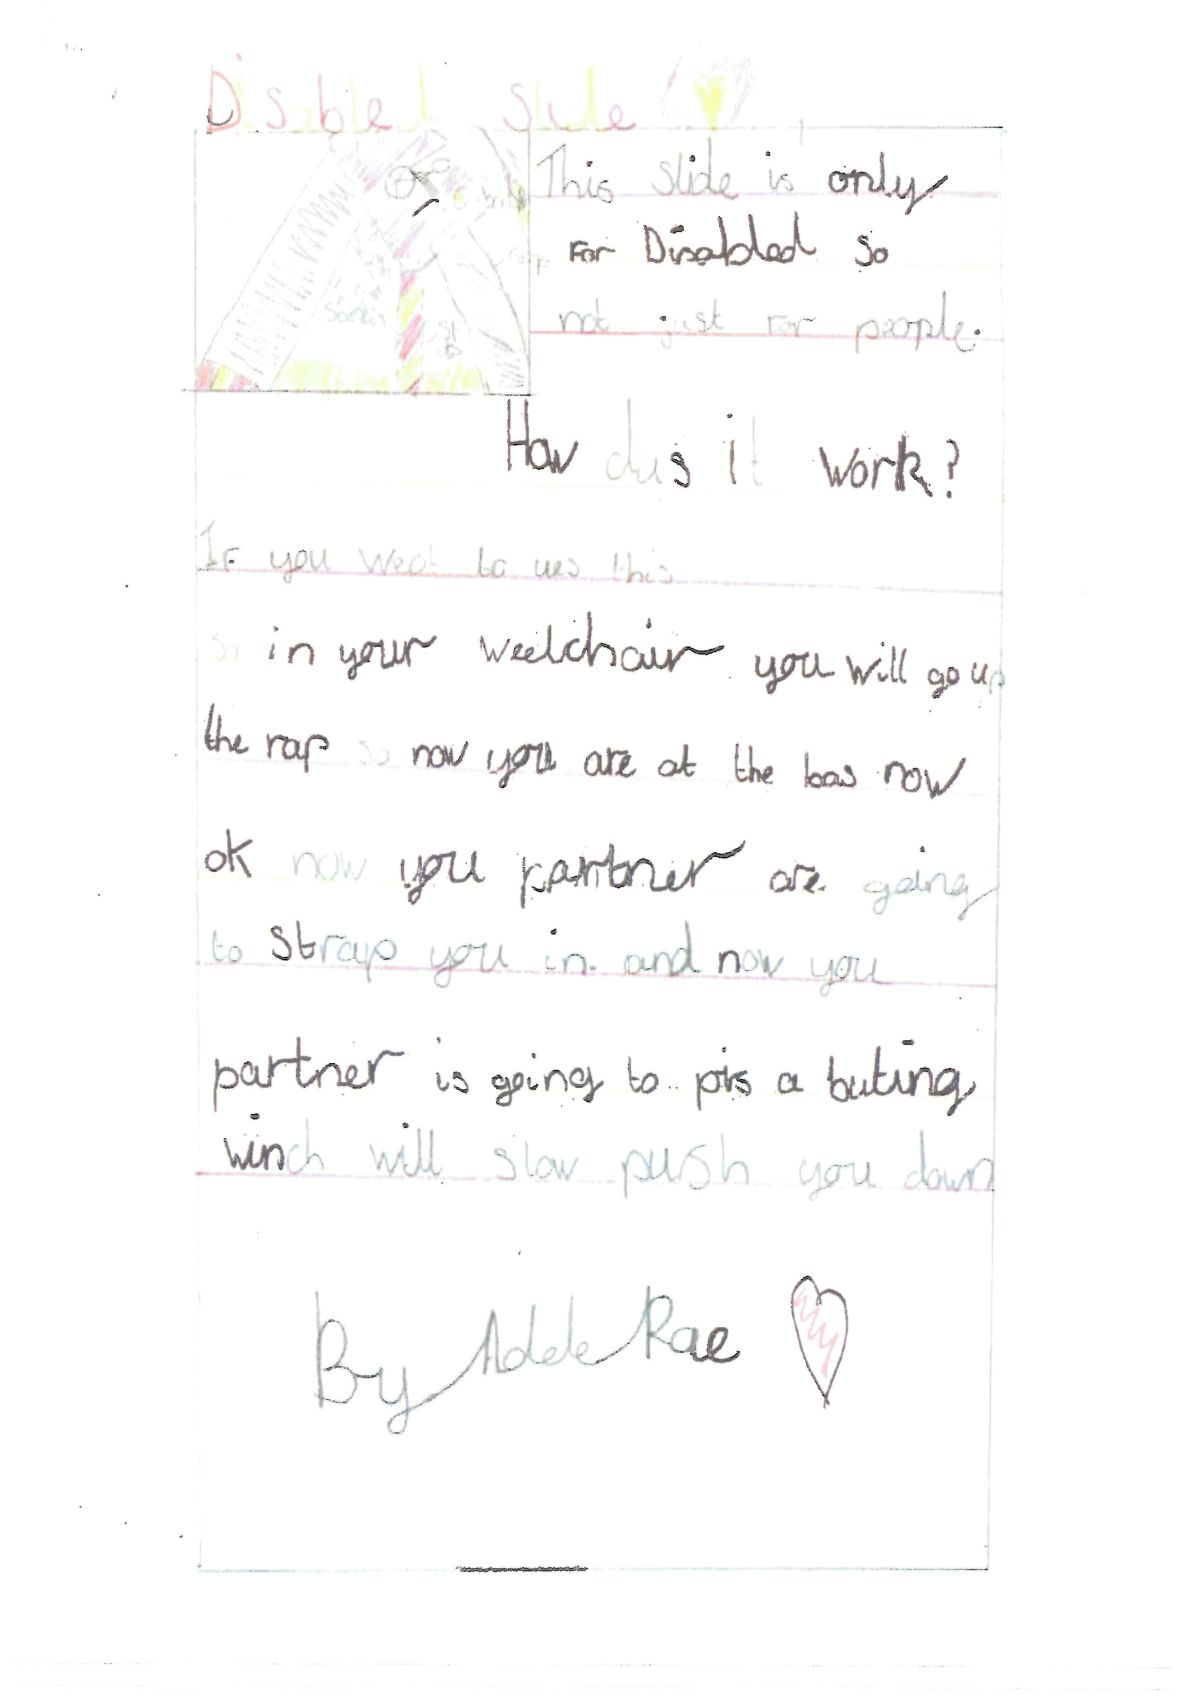 Disabled Slide
This slide is only
For Disabled so
not just for people.
How dus it work?
If you weat to ues this
so in your weelchair you will go up
the rap so now you are at the bas now
ok now you partner are going
to strap you in. and now you
partner is going to pis a buting
winch will slow push you down
By Adele Rae